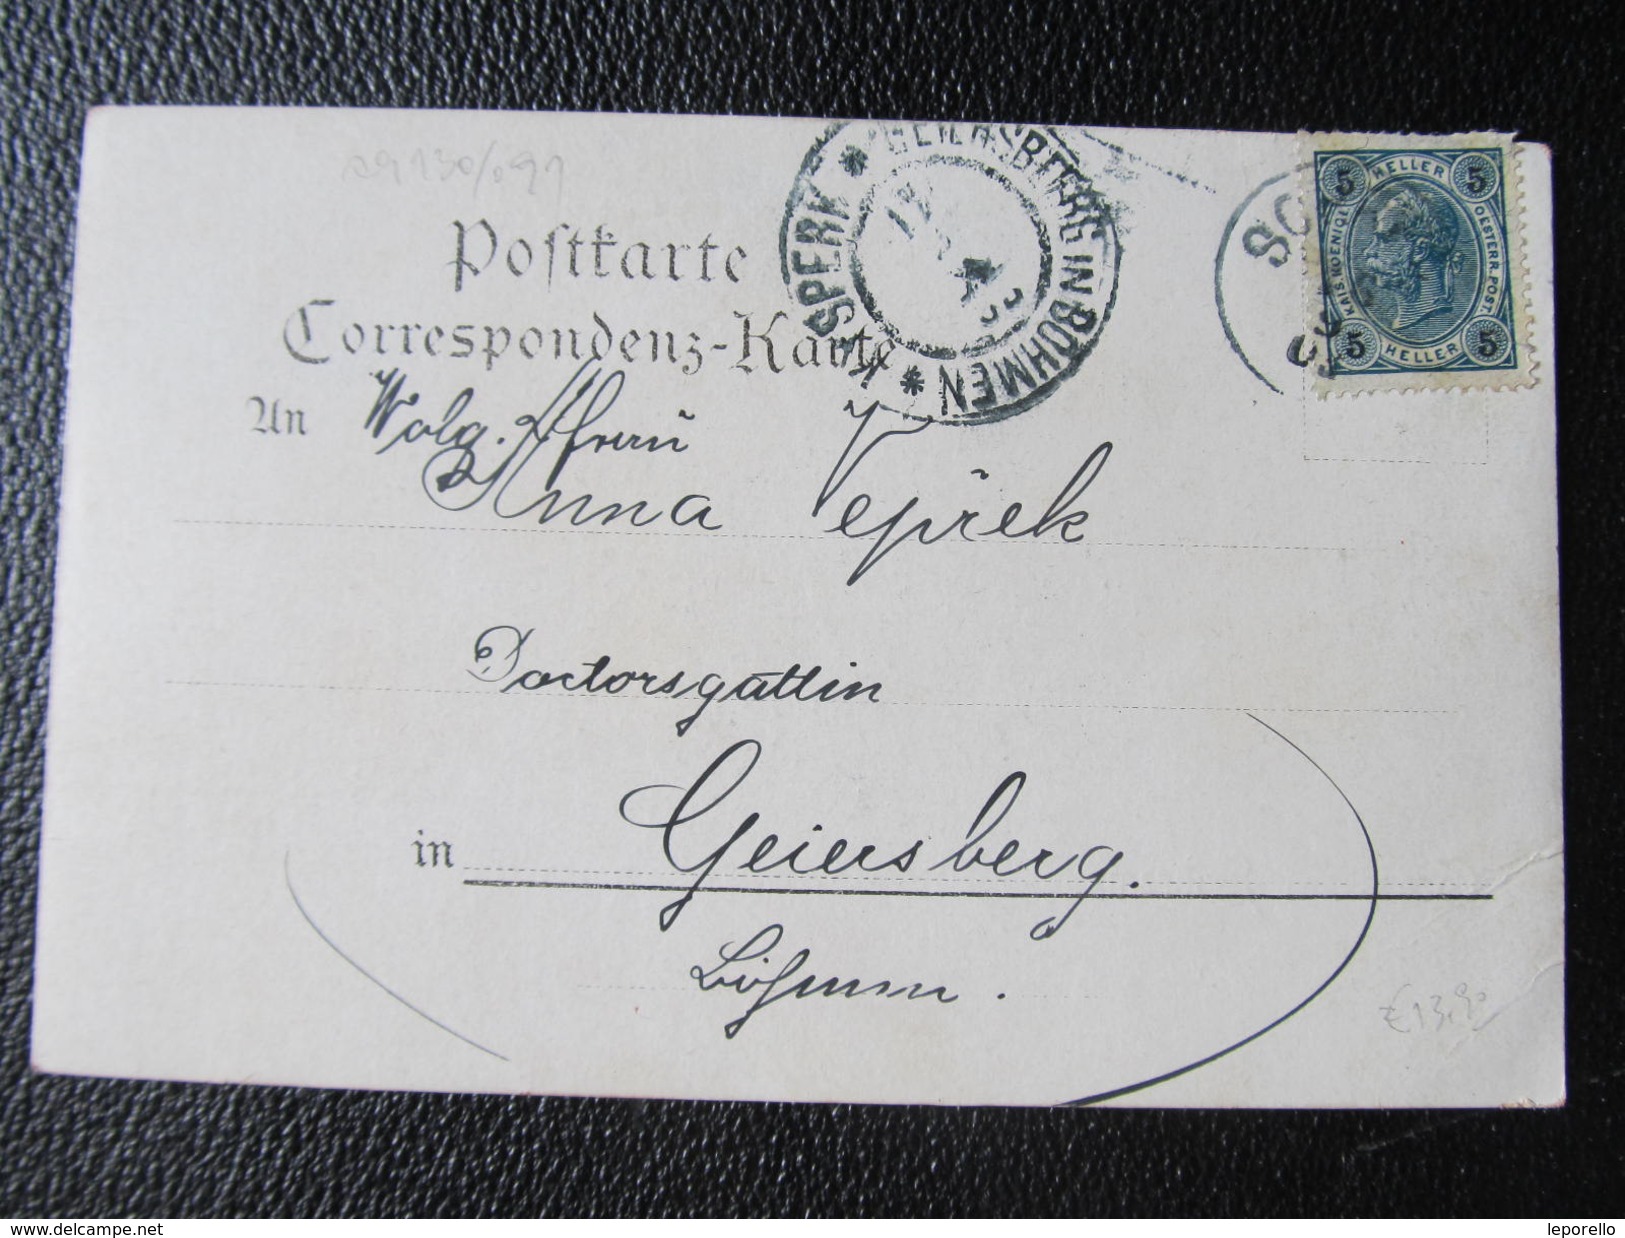 29130/091
Postkarte
Correspondenz-Karte
GEIERSBERG IN BÖHMEN
KYSPERK
5 HELLER 5
KAIS. KOENIGL. OESTERR. POST.
5 HELLER 5
An Wolg. frau
Anna Vepřek
Doctorsgattin
in Geiersberg.
Böhmen.
€13,90
delcampe.net
leporello